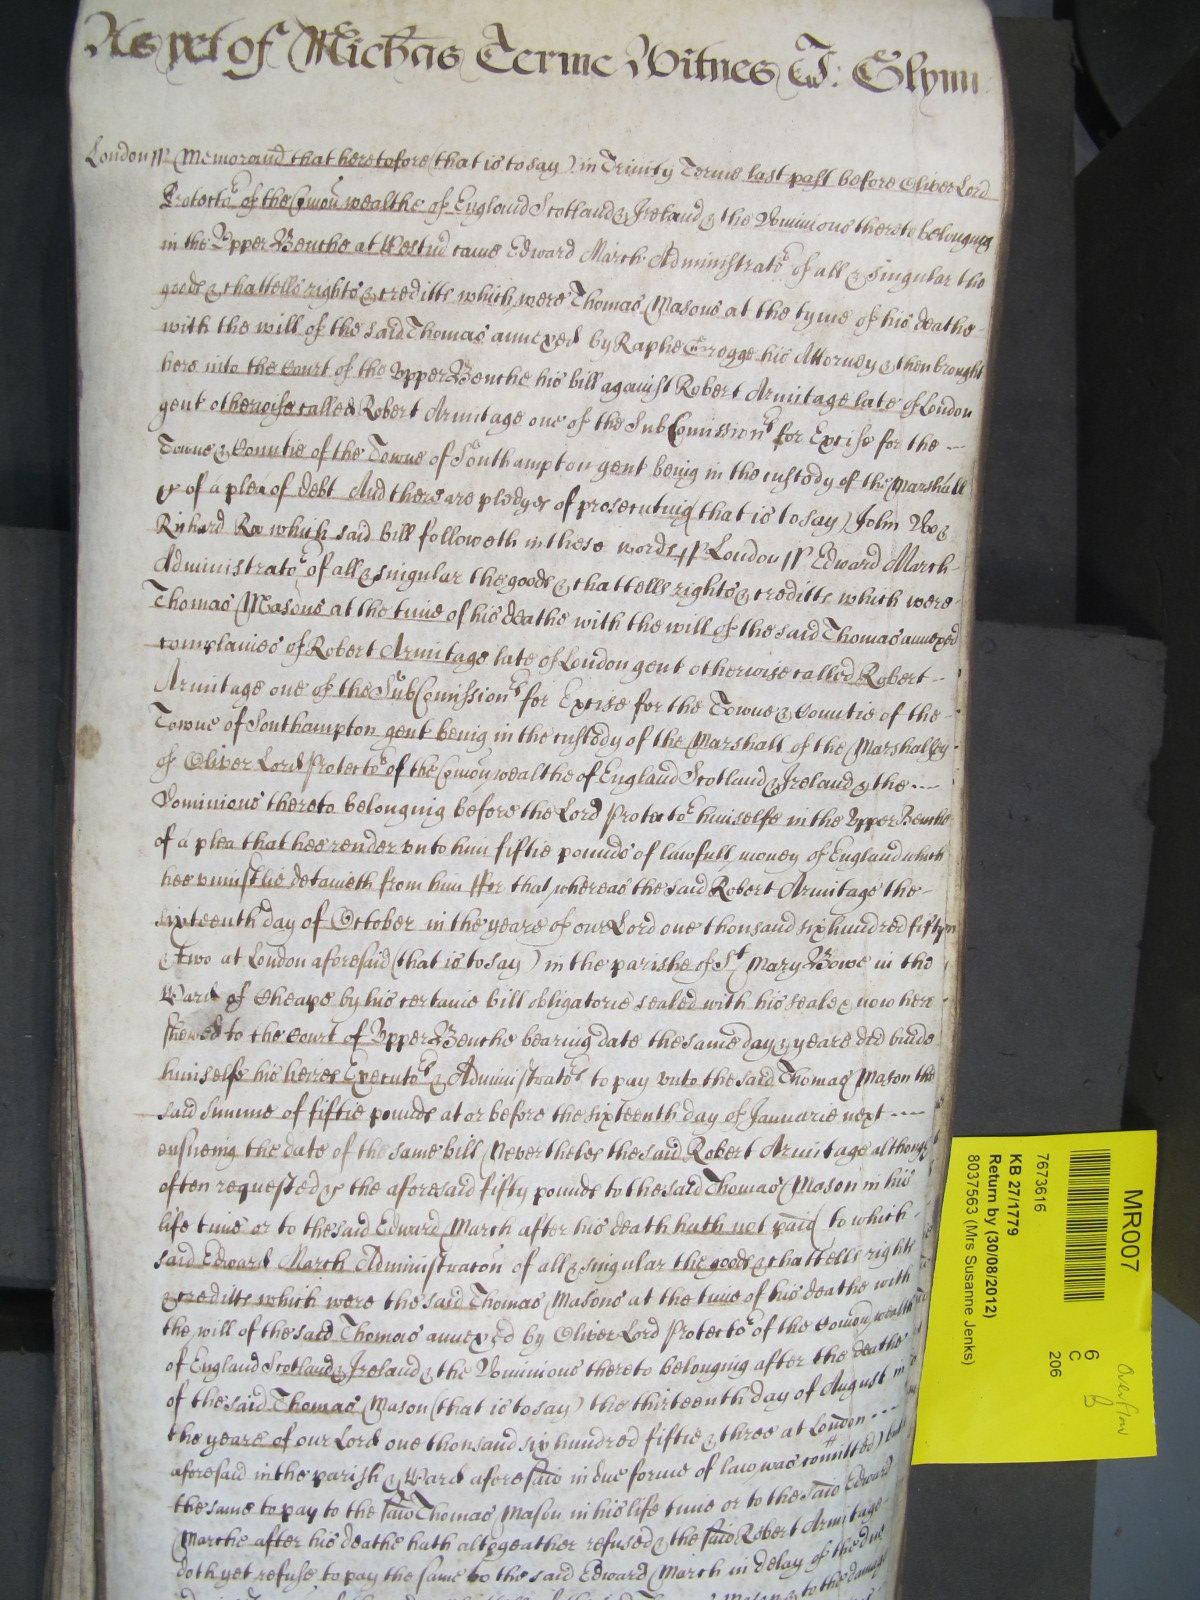 As yet of Michas Terme Witnes J: Glynn
London ss Memorand that heretofore (that is to say) in Trinity Terme last past before Oliver Lord
Protector of the Comon wealthe of England Scotland & Ireland & the Dominions thereto belonging
in the Upper Benche at Westm came Edward March Administrator of all & singular the
goods & chattells rights & creditts which were Thomas Masons at the tyme of his deathe
with the will of the said Thomas annexed by Raphe Gregge his Attorney & then brought
here into the Court of the Upper Benche his bill against Robert Armitage late of London
gent otherwise called Robert Armitage one of the Sub Comissionrs for Excise for the
Towne & Countie of the Towne of Southampton gent being in the custody of the Marshall
&c of a plea of debt And there are pledges of prosecuting (that is to say) John Doo &
Richard Roo which said bill followeth in these words ss London ss Edward March
Administrator of all & singular the goods & chattells rights & creditts which were
Thomas Masons at the time of his deathe with the will of the said Thomas annexed
complaines of Robert Armitage late of London gent otherwise called Robert
Armitage one of the Sub Comissionrs for Excise for the Towne & Countie of the
Towne of Southampton gent being in the custody of the Marshall of the Marshalsey
of Oliver Lord Protector of the Comon wealthe of England Scotland & Ireland & the
Dominions thereto belonging before the Lord Protector himselfe in the Upper Benche
of a plea that hee render unto him fiftie pounds of lawfull money of England which
hee uniustlie detaineth from him ffor that whereas the said Robert Armitage the
sixteenth day of October in the yeare of our Lord one thousand six hundred fiftye
& two at London aforesaid (that is to say) in the parishe of St Mary Bowe in the
Ward of Cheape by his certaine bill obligatorie sealed with his seale & now here
shewed to the Court of Upper Benche bearing date the same day & yeare did binde
himselfe his heires Executors & Administrators to pay unto the said Thomas Mason the
said summe of fiftie pounds at or before the sixteenth day of Januarie next
ensueing the date of the same bill Neverthelesse the said Robert Armitage although
often requested &c the aforesaid fifty pounds to the said Thomas Mason in his
life time or to the said Edward March after his death hath not paid (to which
said Edward March Administracon of all & singular the goods & chattells rights
& creditts which were the said Thomas Masons at the time of his deathe with
the will of the said Thomas annexed by Oliver Lord Protector of the Comon wealth
of England Scotland & Ireland & the Dominions thereto belonging after the deathe
of the said Thomas Mason (that is to say) the thirteenth day of August in
the yeare of our Lord one thousand six hundred fiftie & three at London
aforesaid in the parish & Ward aforesaid in due forme of law was comitted) but
the same to pay to the said Thomas Mason in his life time or to the said Edward
Marche after his deathe hath altogeather refused & the said Robert Armitage
doth yet refuse to pay the same to the said Edward March in delay of the due
Mason & to the damage
MR007
7673616
KB 27/1779
Return by (30/08/2012)
8037563 (Mrs Susanne Jenks)
6
C
206
Overflow
B